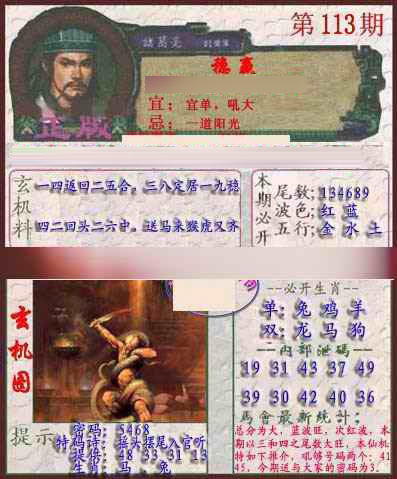 第113期
諸葛亮
稳赢
宜：宜单，吼大
忌：一道阳光
正版
玄机料
一四返回二五合。三八定居一九稳
四二回头二六中。送马来猴虎又齐
本期必开
尾数;134689
波色;红 蓝
五行;金 水 土
玄机图
--必开生肖--
单: 兔 鸡 羊
双: 龙 马 狗
--内部泄码--
19 31 43 37 49
39 30 42 40 36
馬會最新統計:
总分为大，蓝波旺，次红波，本期以三和四之尾数大旺，本仙机特如下推介，吼够号码两个: 4145，今期送与大家的密码为3.
提示
密码: 5468
特码诗: 摇头摆尾入官听
挺码: 48 33 31 13
生肖: 马 、兔